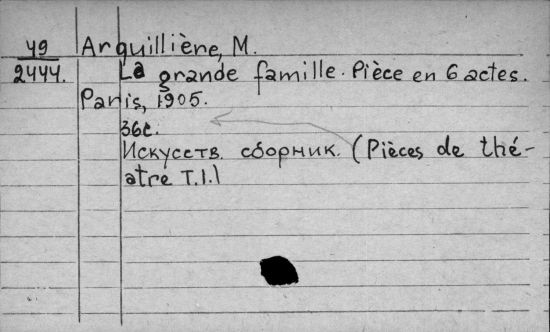 49 Arquillière, M.
2444. La grande famille. Pièce en 6 actes.
Paris, 1905.
36c.
Искусств. сборник. (Pièces de thé-
atre T.I.)